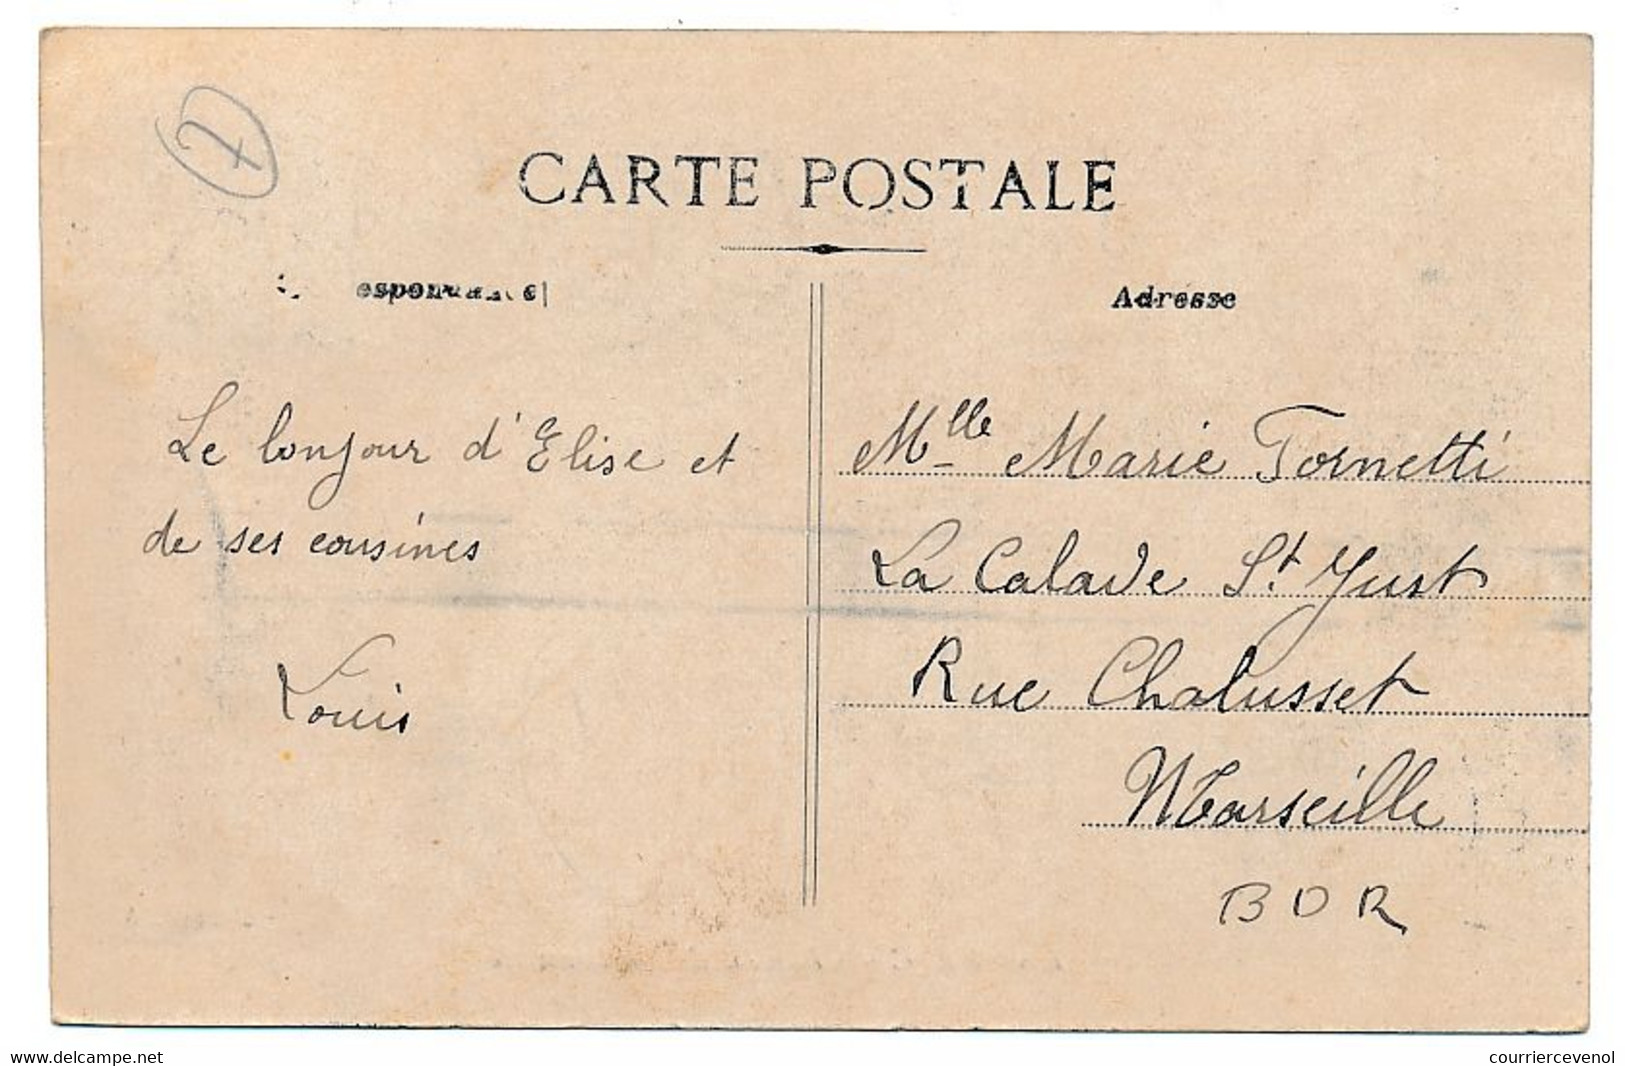 CARTE POSTALE
Adresse
Le bonjour d'Elise et
de ses cousines
Louis
Mlle Marie Tornetti
La Calade St Just
Rue Chalusset
Marseille
BDR
delcampe.net
courriercevenol